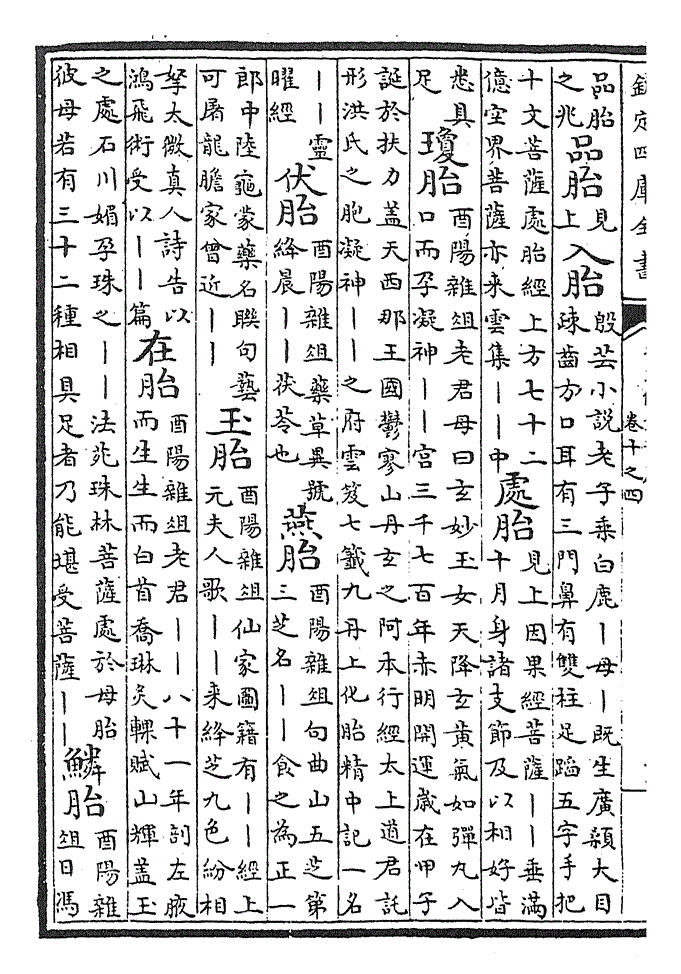 欽定四庫全書
卷十之四
品胎之兆品胎見上入胎殷芸小說老子乘白鹿丨母丨既生廣顙大目疎齒方口耳有三門鼻有雙柱足蹈五字手把
十文菩薩處胎經上方七十二億空界菩薩亦来雲集丨丨中處胎見上因果經菩薩丨丨垂滿十月身諸支節及以相好皆
悉具足瓊胎酉陽雜俎老君母曰玄妙玉女天降玄黄氣如彈丸入口而孕凝神丨丨宮三千七百年赤明開運歲在甲子
誕於扶力盖天西那王國鬱寥山丹玄之阿本行經太上道君託形洪氏之胞凝神丨丨之府雲笈七籤九丹上化胎精中記一名
丨丨靈曜經伏胎酉陽雜俎藥草異號絳晨丨丨茯苓也燕胎酉陽雜俎句曲山五芝第三芝名丨丨食之為正一
郎中陸龜蒙藥名聯句藝可屠龍膽家曾近丨丨玉胎酉陽雜俎仙家圖籍有丨丨經上元夫人歌丨丨来絳芝九色紛相
拏太微真人詩告以鴻飛術受以丨丨篇在胎酉陽雜俎老君丨丨八十一年剖左腋而生生而白首喬琳炙輠賦山輝盖玉
之處石川媚孕珠之丨丨法苑珠林菩薩處於母胎彼母若有三十二種相具足者乃能堪受菩薩丨丨鱗胎酉陽雜俎曰馮